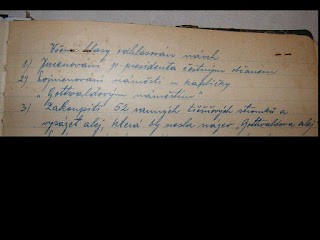 Všemi hlasy odhlasován návrh
1) Jmenování p. presidenta čestným občanem
2) Pojmenování náměstí u kapličky
„Gottwaldovým náměstím"
3) Zakoupiti 52 ranných třešňových stromků a
vysázet alej, která by nesla název „Gottwaldova alej"